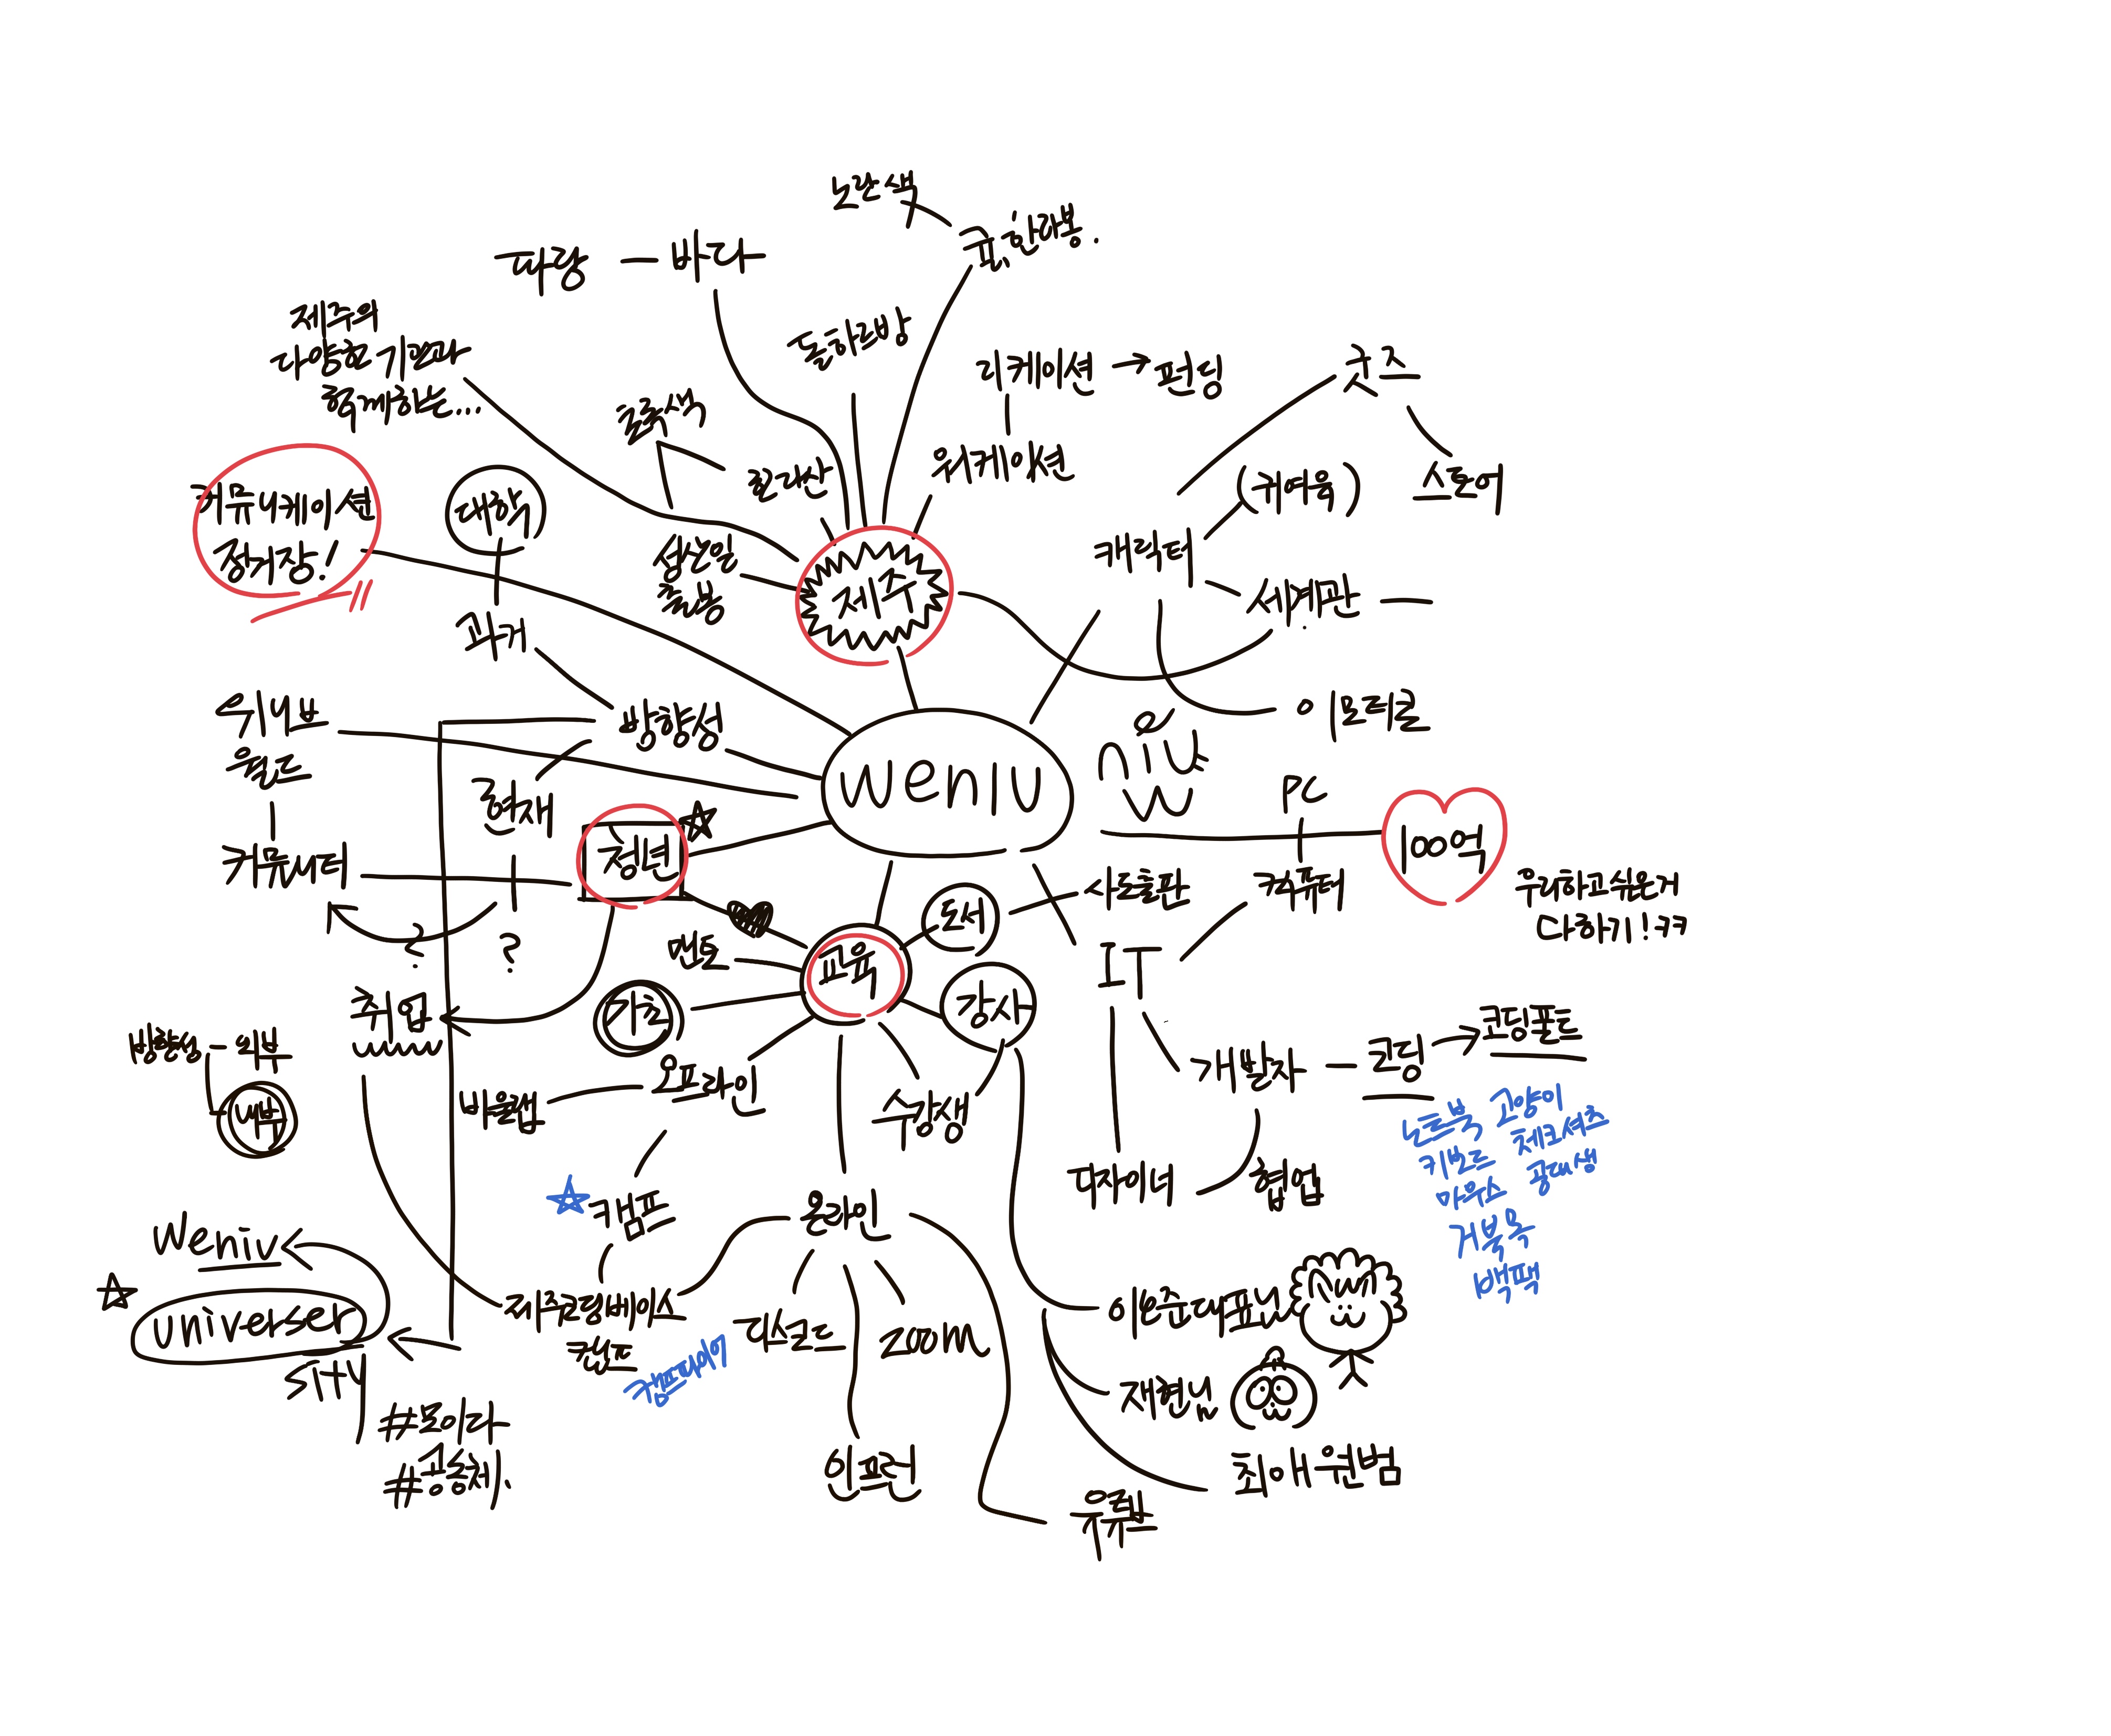 노란색
귤, 한라봉.
파랑 — 바다
제주의
다양한 기업과
돌하르방
리케이션 → 펀딩
굿즈
워케이션
(귀여움)
스토어
한라산
커뮤니케이션
정거장!
대학
성산일
출봉
제주
캐릭터
세계관
과거
위니브
월드
방향성
이모티콘
weniv
현재
PC
100억
청년
커뮤니티
사도출판
컴퓨터
우리하고싶은거
다하기!ㅋㅋ
도서
?
?
멘토
교육
IT
취업
강사
방향성 - 외부
내부
개발자 — 코딩 → 코딩폰트
바울랩
오프라인
수강생
노트북 고양이
키보드 체크셔츠
마우스 공대생
거북목
백팩
디자이너
협업
캠프
온라인
weniv
universer
sity
제주코딩베이스
캠프
캠프파이어
디스코드
zoom
이호준대표님
재현님
#놀이라
#공동체.
인프런
최애원범
유튜브